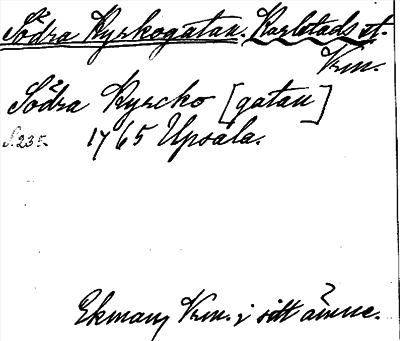 Södra Kyrkogatan. Karlstads st.
Vrm.
Södra Kyrcho [gatan]
S. 235. 1765 Upsala.
Ekman, Vrm. i sitt ämne.